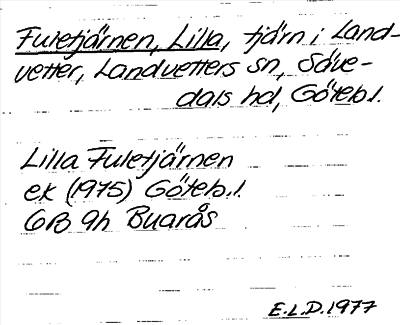 Fuletjärnen, Lilla, tjärn i Land-
vetter, Landvetters sn, Säve-
dals hd, Göteb.l.
Lilla Fuletjärnen
ek (1975) Göteb.l.
6B 9h Buarås
E.L.D.1977